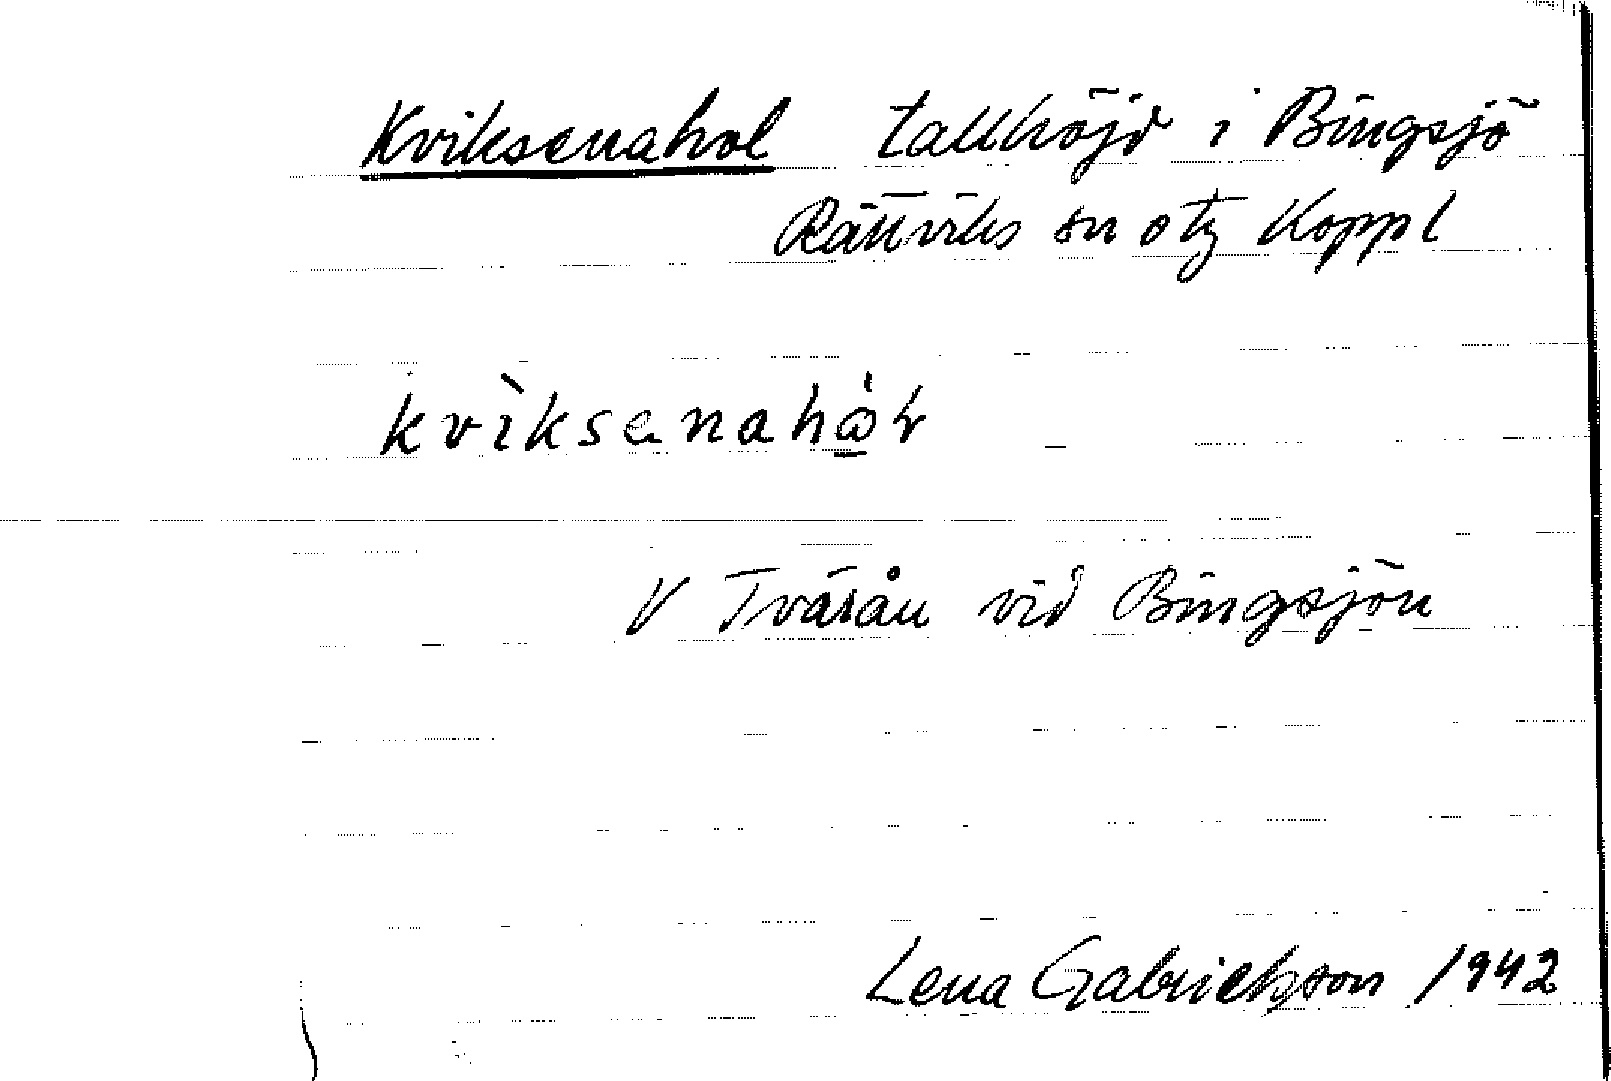 Kviksenahol tallhöjd i Bingsjö
Rättviks sn otz Koppl
kvìksenahȯ̲l
V Tvärån vid Bingsjön
Lena Gabrielsson 1942